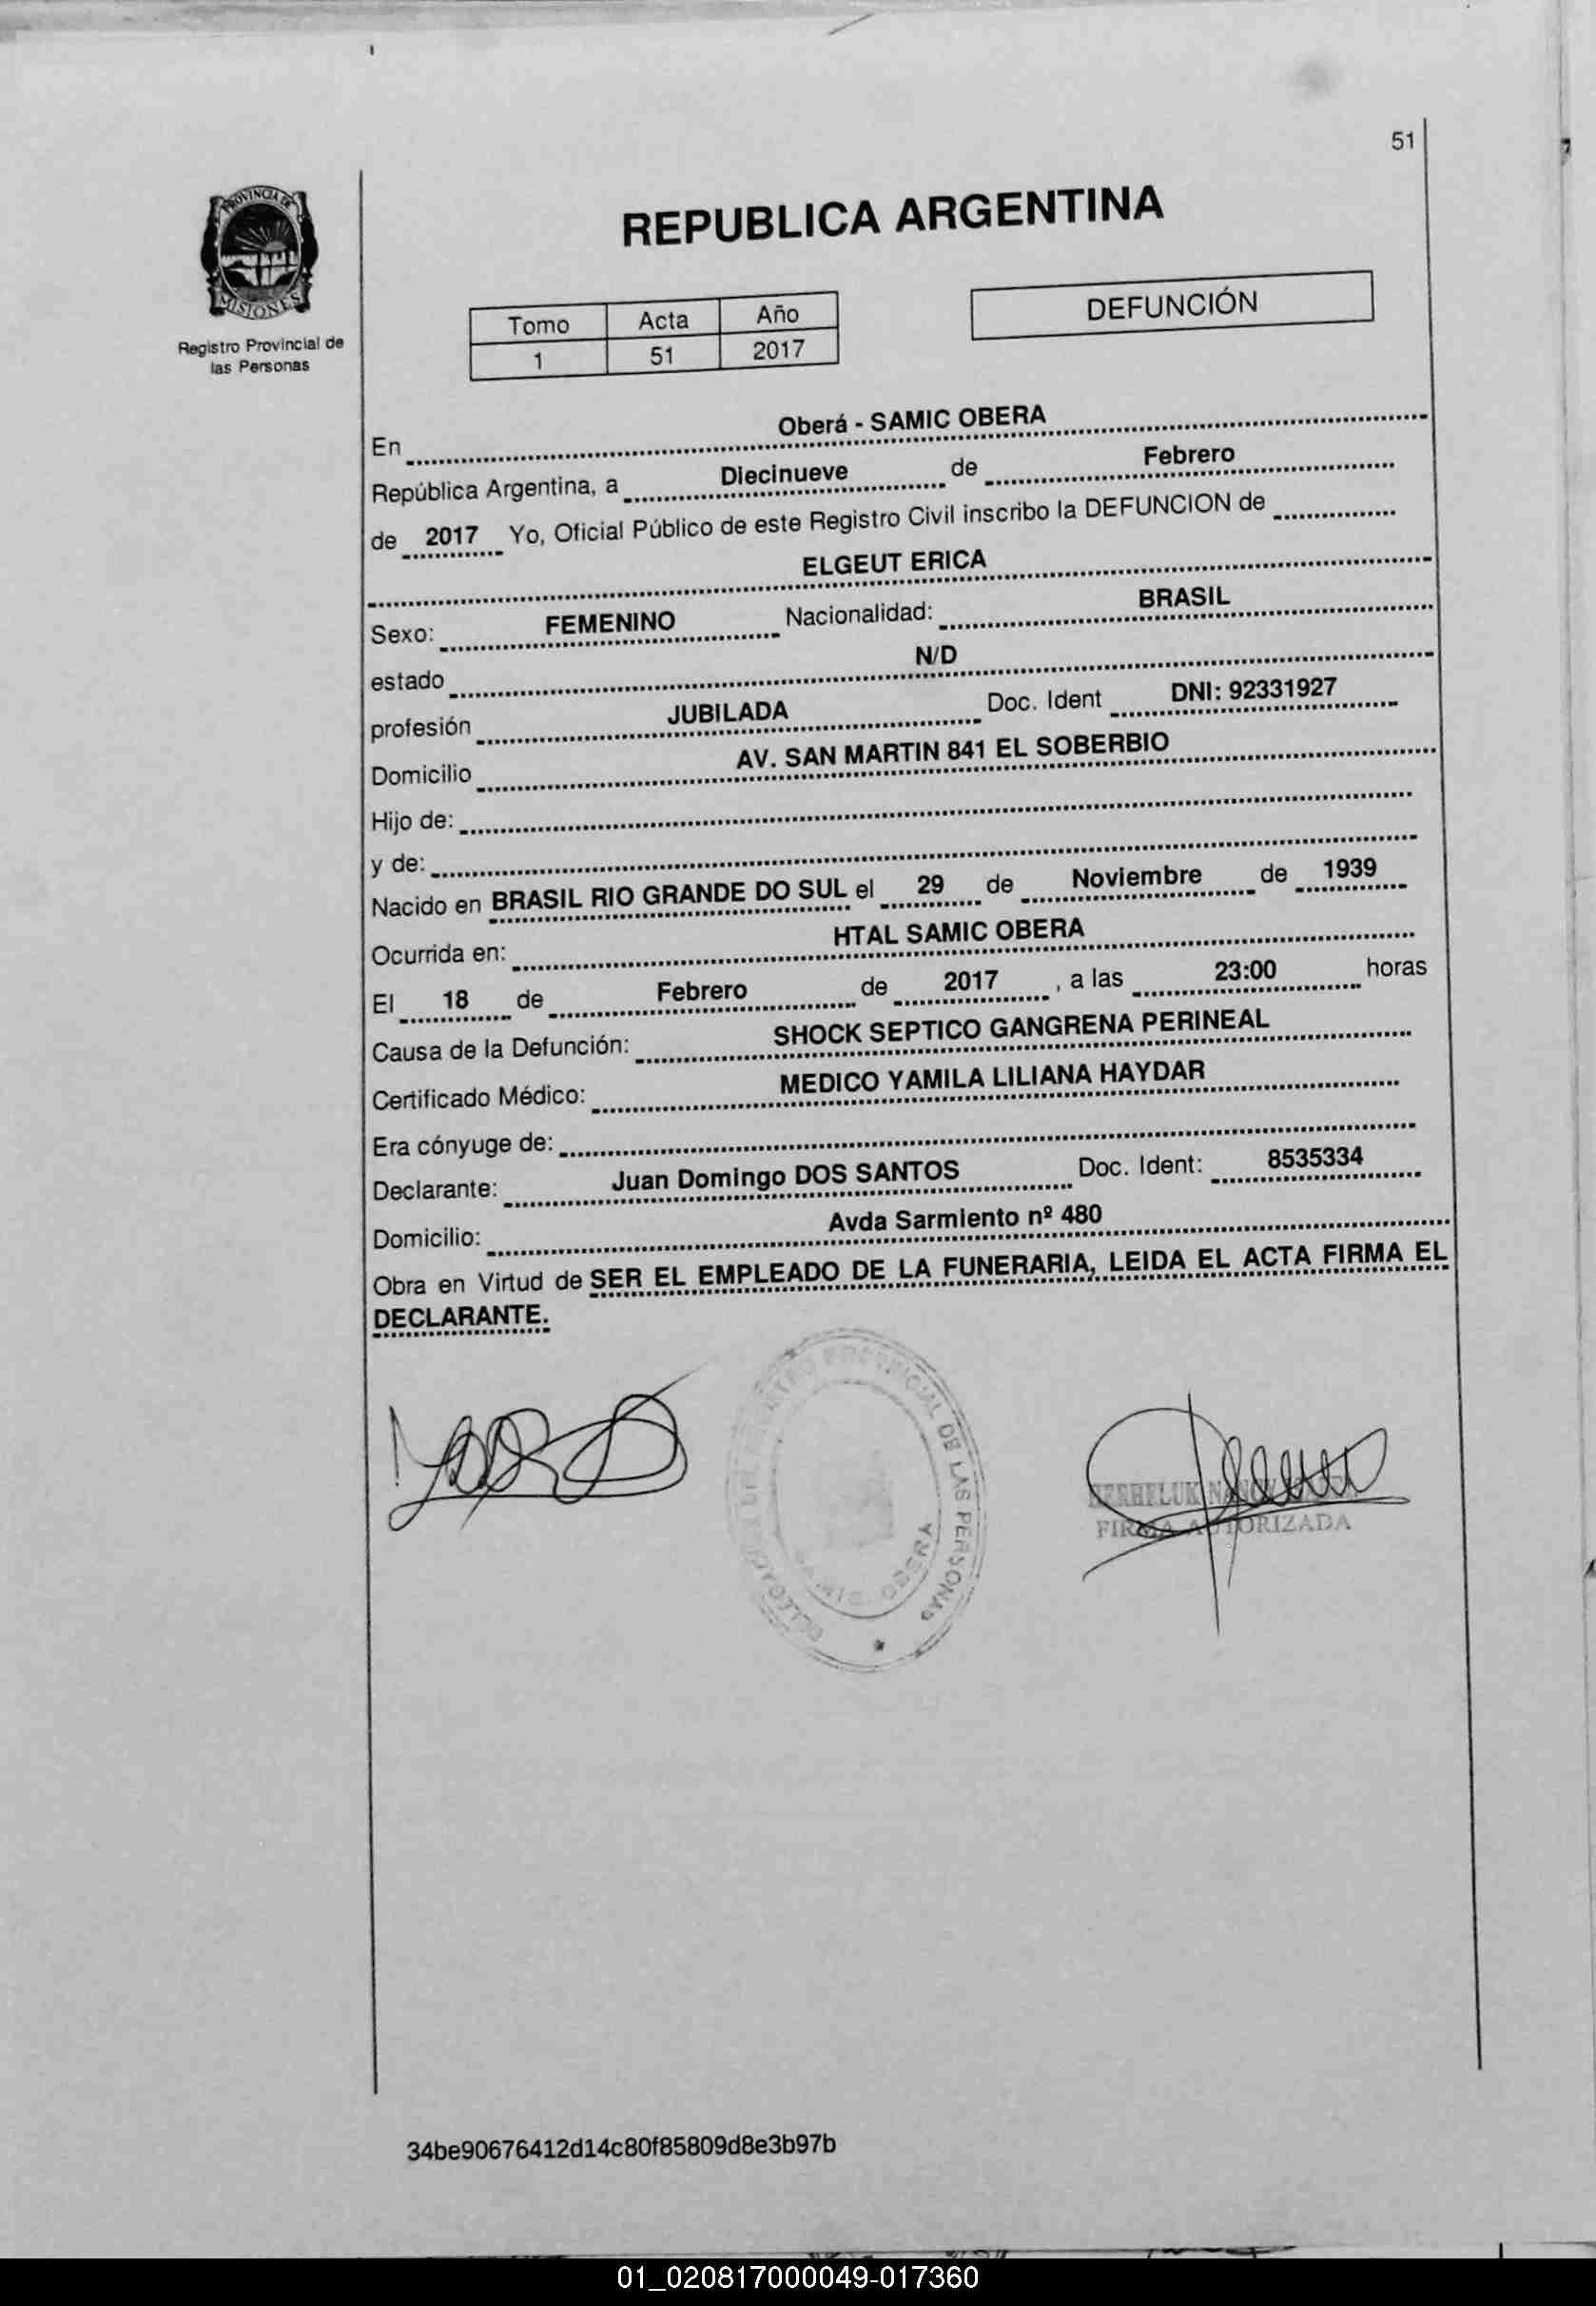 51
PROVINCIA DE
MISIONES
Registro Provincial de
las Personas
REPUBLICA ARGENTINA
Tomo Acta Año
1 51 2017
DEFUNCIÓN
En Oberá - SAMIC OBERA
República Argentina, a Diecinueve de Febrero
de 2017 Yo, Oficial Público de este Registro Civil inscribo la DEFUNCION de
ELGEUT ERICA
Sexo: FEMENINO Nacionalidad: BRASIL
estado N/D
profesión JUBILADA Doc. Ident DNI: 92331927
Domicilio AV. SAN MARTIN 841 EL SOBERBIO
Hijo de:
y de:
Nacido en BRASIL RIO GRANDE DO SUL el 29 de Noviembre de 1939
Ocurrida en: HTAL SAMIC OBERA
El 18 de Febrero de 2017 , a las 23:00 horas
Causa de la Defunción: SHOCK SEPTICO GANGRENA PERINEAL
Certificado Médico: MEDICO YAMILA LILIANA HAYDAR
Era cónyuge de:
Declarante: Juan Domingo DOS SANTOS Doc. Ident: 8535334
Domicilio: Avda Sarmiento nº 480
Obra en Virtud de SER EL EMPLEADO DE LA FUNERARIA, LEIDA EL ACTA FIRMA EL
DECLARANTE.
PROVINCIAL DE LAS PERSONAS
OBERA
FIRMA AUTORIZADA
34be90676412d14c80f85809d8e3b97b
01_020817000049-017360